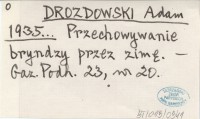 0
DROZDOWSKI Adam
1935... Przechowywanie
bryndzy przez zimę. –
Gaz. Podh. 23, nr 20.